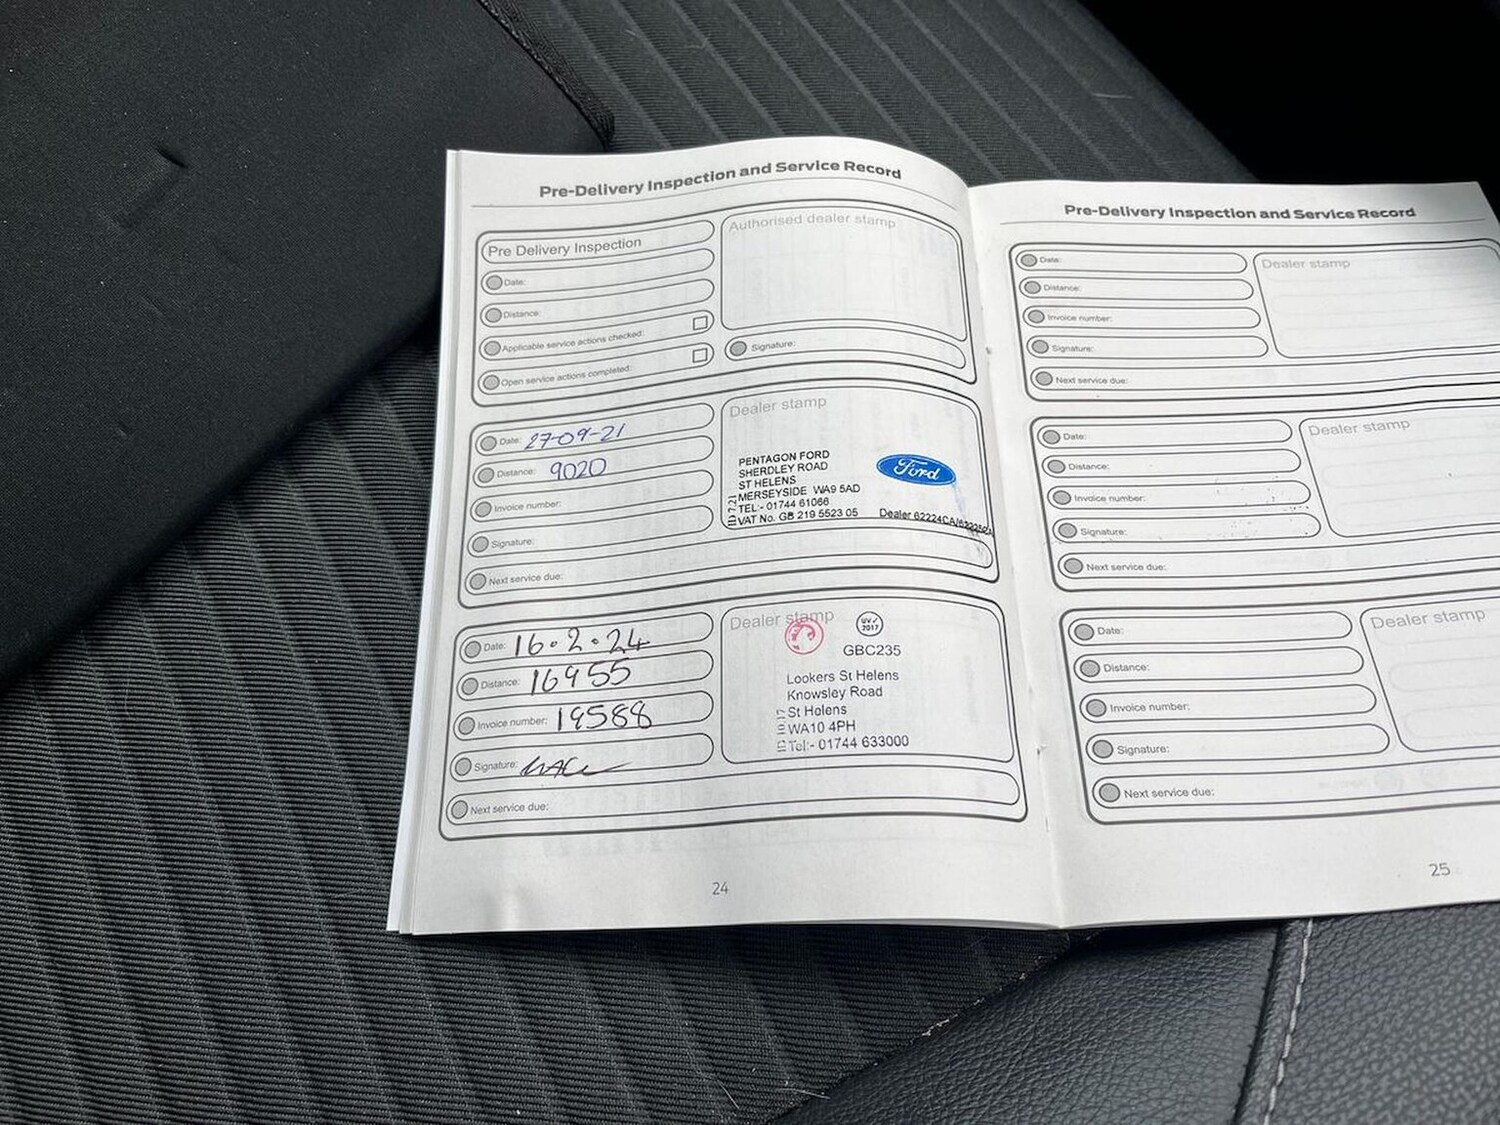 Pre-Delivery Inspection and Service Record
Pre Delivery Inspection
Date:
Distance:
Applicable service actions checked:
Open service actions completed:
Authorised dealer stamp
Signature:
Date: 27-09-21
Distance: 9020
Invoice number:
Signature:
Next service due:
Dealer stamp
PENTAGON FORD
SHERDLEY ROAD
ST HELENS
MERSEYSIDE WA9 5AD
TEL:- 01744 61066
VAT No. GB 219 5523 05
Ford
Dealer 62224CA/
Date: 16.2.24
Distance: 16955
Invoice number: 19588
Signature:
Next service due:
Dealer stamp
UV✓
2017
GBC235
Lookers St Helens
Knowsley Road
St Helens
WA10 4PH
Tel:- 01744 633000
24
Pre-Delivery Inspection and Service Record
Date:
Distance:
Invoice number:
Signature:
Next service due:
Dealer stamp
Date:
Distance:
Invoice number:
Signature:
Next service due:
Dealer stamp
Date:
Distance:
Invoice number:
Signature:
Next service due:
Dealer stamp
25